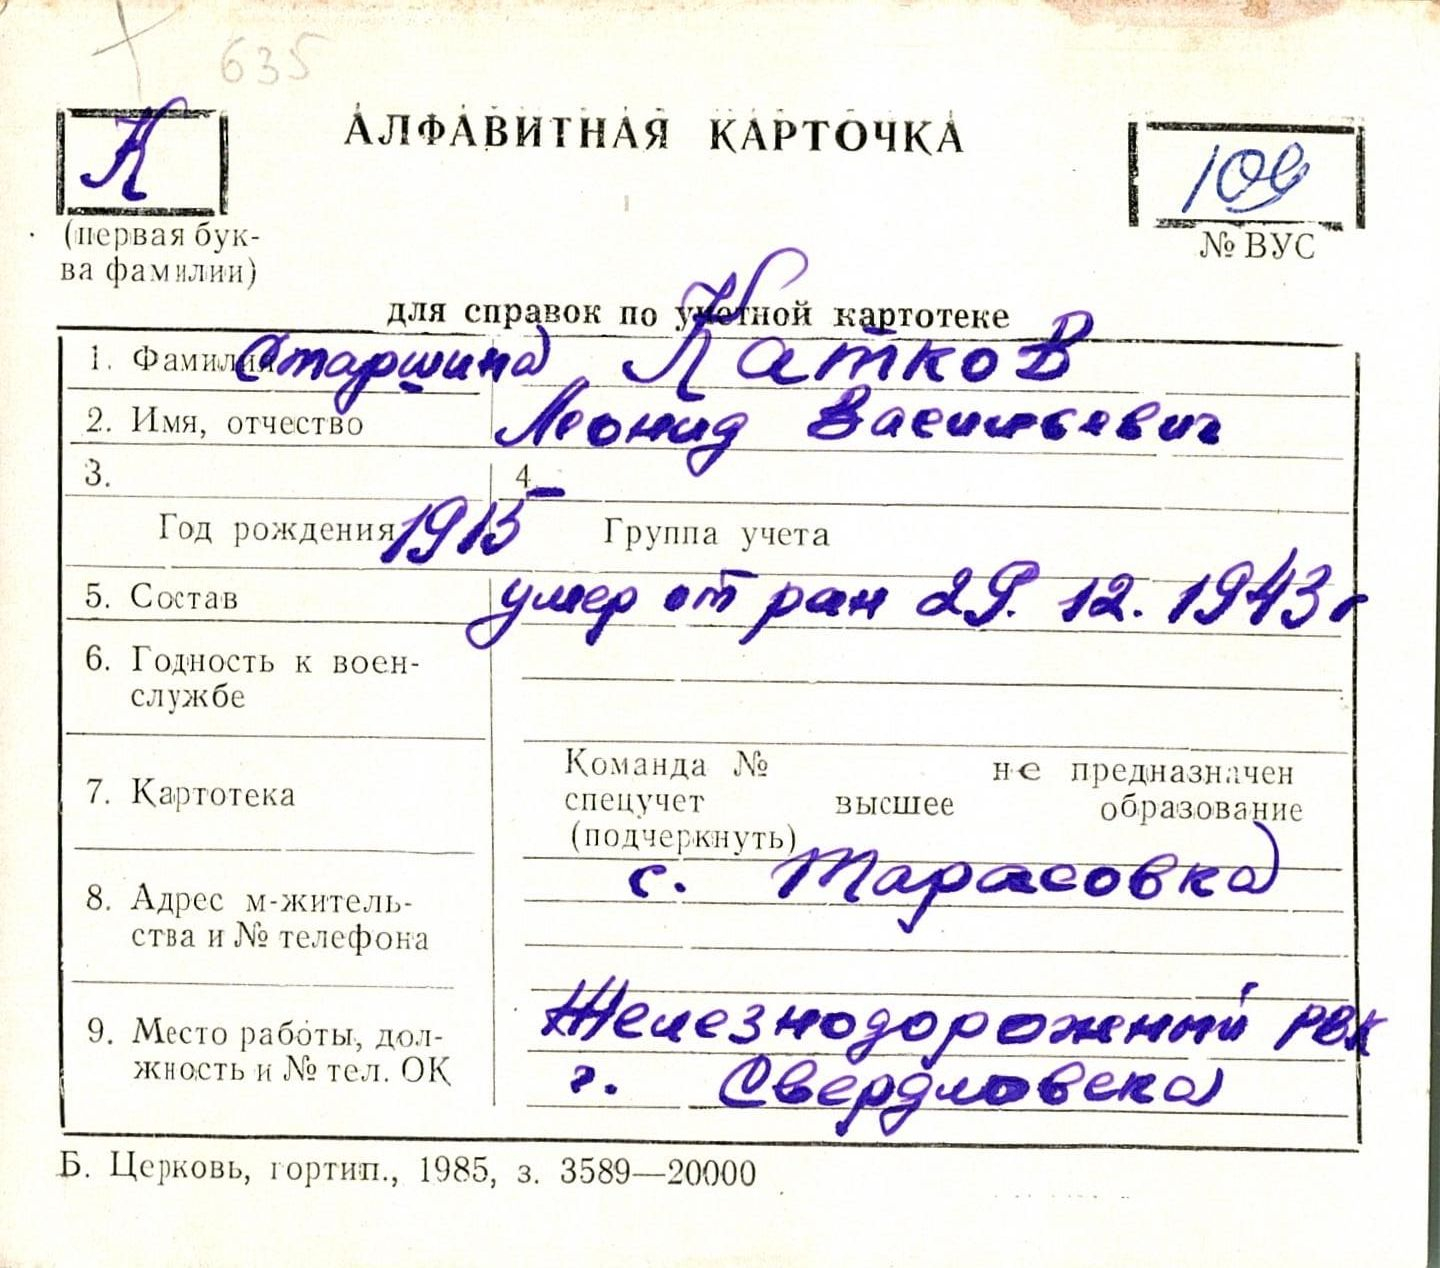 635
К
АЛФАВИТНАЯ КАРТОЧКА
109
(первая бук-
ва фамилии)
№ ВУС
для справок по учетной картотеке
1. Фамилия Старшина Катков
2. Имя, отчество Леонид Васильевич
3. 4.
Год рождения 1915 Группа учета
5. Состав умер от ран 29.12.1943г
6. Годность к воен-
службе
Команда № не предназначен
7. Картотека
спецучет высшее образование
(подчеркнуть)
с. Тарасовка
8. Адрес м-житель-
ства и № телефона
Железнодорожный РВК
9. Место работы, дол-
жность и № тел. ОК
г. Свердловска
Б. Церковь, гортип., 1985, з. 3589—20000